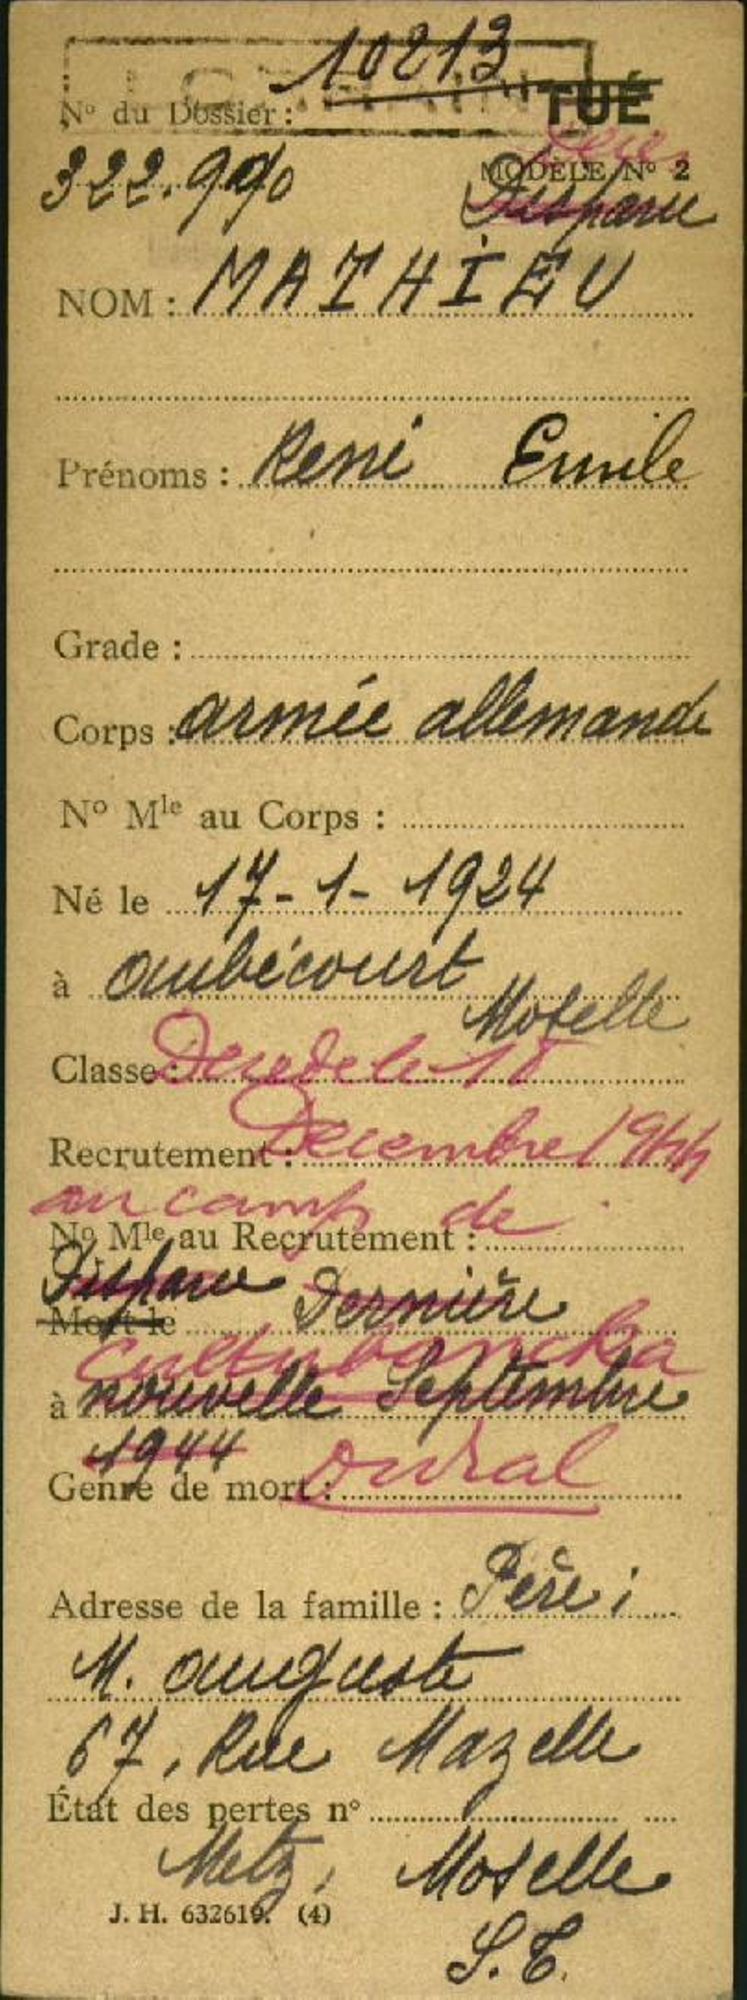 10213
N° du Dossier :
TUÉ
MODÈLE N° 2
322.990
Disparu
NOM : MATHIEU
Prénoms : René Emile
Grade :
Corps : armée allemande
N° Mle au Corps :
Né le 17-1-1924
à Aubécourt
Moselle
Classe : Décédé le 18
Recrutement : Décembre 1944
au camp de
N° Mle au Recrutement :
Disparu Dernière
Mort le
à nouvelle Septembre
1944
Genre de mort : Oural
Adresse de la famille : Père :
M. Auguste
67, Rue Mazelle
État des pertes n°
Metz, Moselle
J. H. 632619. (4)
S.T.